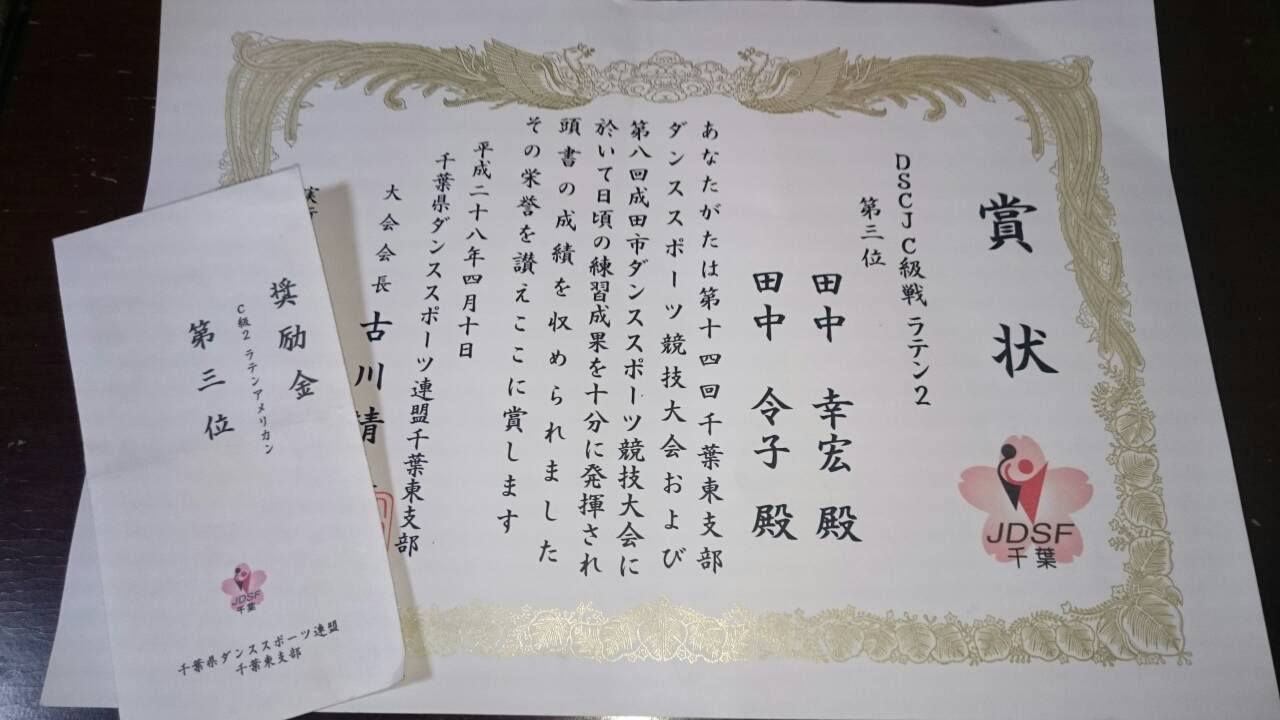 賞状
DSCJ C級戦 ラテン2
第三位
田中 幸宏 殿
田中 令子 殿
あなたがたは第十四回千葉東支部
ダンススポーツ競技大会および
第八回成田市ダンススポーツ競技大会に
於いて日頃の練習成果を十分に発揮され
頭書の成績を収められました
その栄誉を讃えここに賞します
平成二十八年四月十日
千葉県ダンススポーツ連盟千葉東支部
大会会長 古川清
実行
JDSF
千葉
奨励金
C級2 ラテンアメリカン
第三位
JDSF
千葉
千葉県ダンススポーツ連盟
千葉東支部